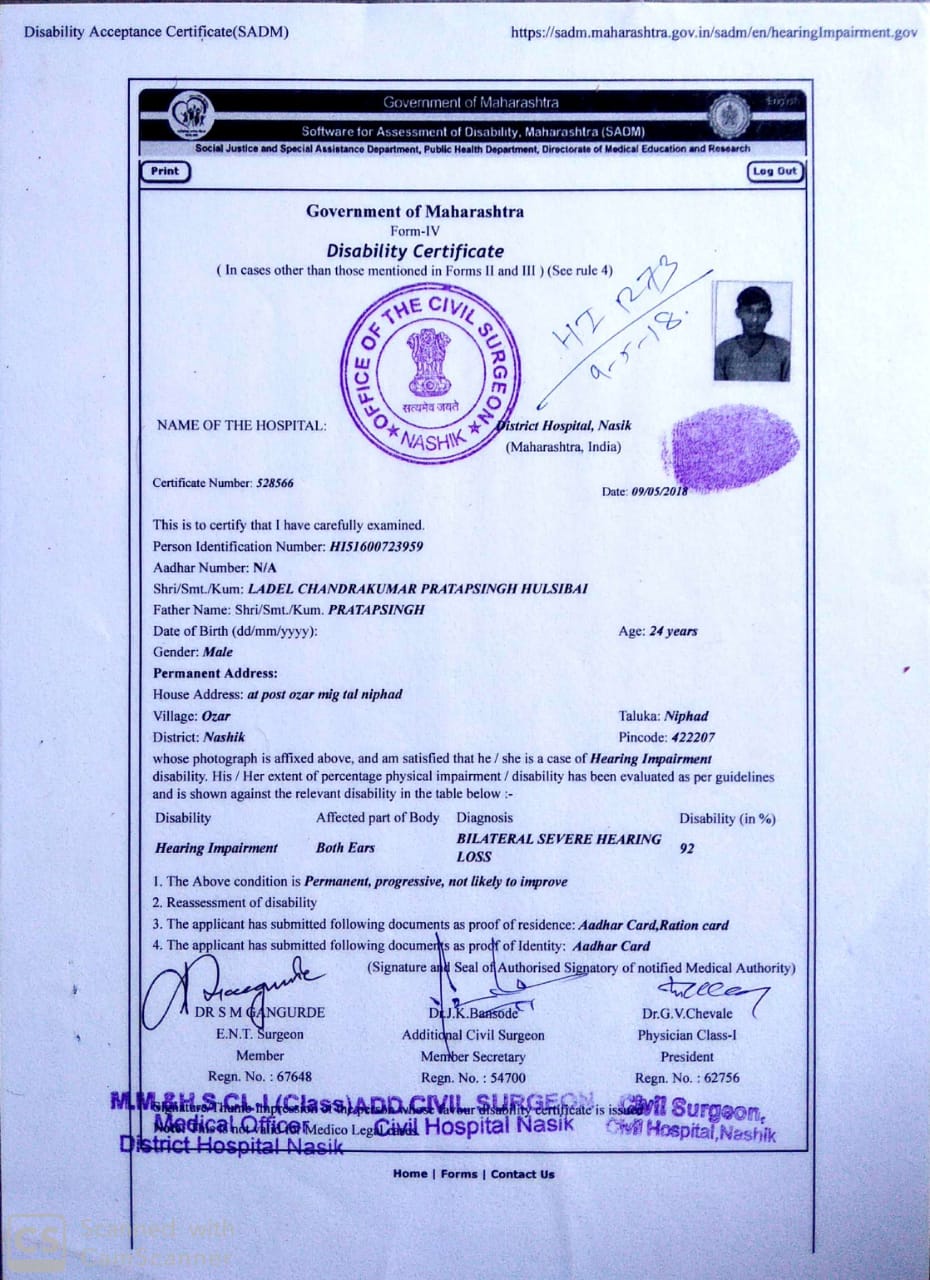 Disability Acceptance Certificate(SADM)
https://sadm.maharashtra.gov.in/sadm/en/hearingImpairment.gov
Government of Maharashtra
English
Software for Assessment of Disability, Maharashtra (SADM)
Social Justice and Special Assistance Department, Public Health Department, Directorate of Medical Education and Research
Print
Log Out
Government of Maharashtra
Form-IV
Disability Certificate
( In cases other than those mentioned in Forms II and III ) (See rule 4)
HI 1273
9-5-18.
OFFICE OF THE CIVIL SURGEON
सत्यमेव जयते
★ NASHIK ★
NAME OF THE HOSPITAL:
District Hospital, Nasik
(Maharashtra, India)
Certificate Number: 528566
Date: 09/05/2018
This is to certify that I have carefully examined.
Person Identification Number: HI51600723959
Aadhar Number: N/A
Shri/Smt./Kum: LADEL CHANDRAKUMAR PRATAPSINGH HULSIBAI
Father Name: Shri/Smt./Kum. PRATAPSINGH
Date of Birth (dd/mm/yyyy): Age: 24 years
Gender: Male
Permanent Address:
House Address: at post ozar mig tal niphad
Village: Ozar Taluka: Niphad
District: Nashik Pincode: 422207
whose photograph is affixed above, and am satisfied that he / she is a case of Hearing Impairment
disability. His / Her extent of percentage physical impairment / disability has been evaluated as per guidelines
and is shown against the relevant disability in the table below :-
Disability Affected part of Body Diagnosis Disability (in %)
Hearing Impairment Both Ears BILATERAL SEVERE HEARING LOSS 92
1. The Above condition is Permanent, progressive, not likely to improve
2. Reassessment of disability
3. The applicant has submitted following documents as proof of residence: Aadhar Card,Ration card
4. The applicant has submitted following documents as proof of Identity: Aadhar Card
(Signature and Seal of Authorised Signatory of notified Medical Authority)
DR S M GANGURDE Dr.J.K.Bansode Dr.G.V.Chevale
E.N.T. Surgeon Additional Civil Surgeon Physician Class-I
Member Member Secretary President
Regn. No. : 67648 Regn. No. : 54700 Regn. No. : 62756
Signature/Thumb Impression of the person whose favour disability certificate is issued
Note: This is not valid for Medico Legal
M.M.& H.S.CL-I (Class) ADD.CIVIL SURGEON Civil Surgeon,
Medical Officer Civil Hospital Nasik Civil Hospital,Nashik
District Hospital Nasik
Home | Forms | Contact Us
CS
Scanned with
CamScanner